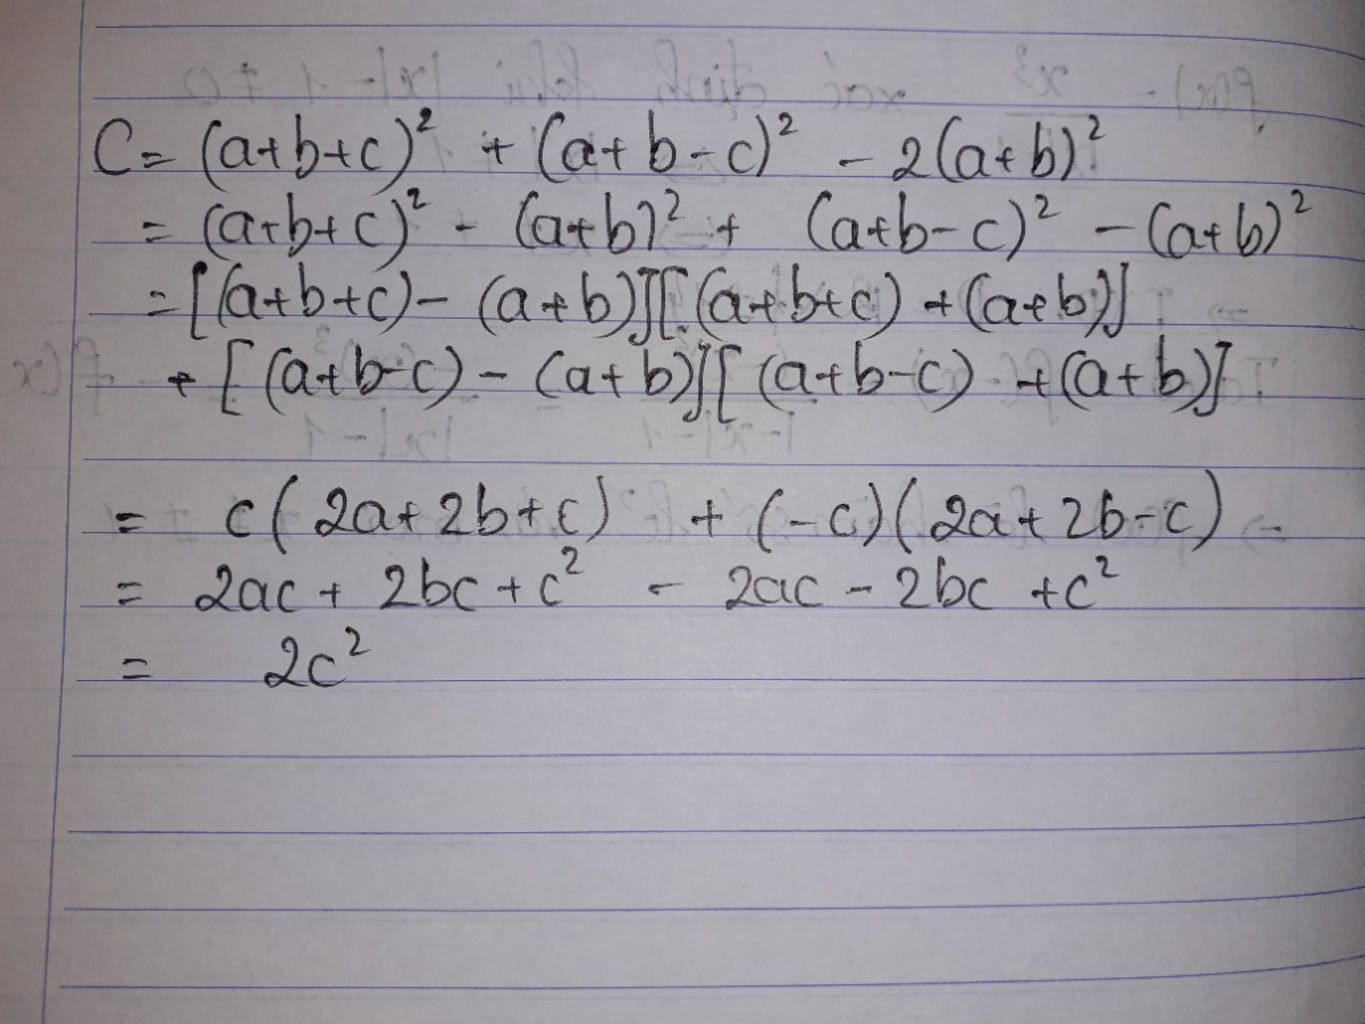 C = (a+b+c)² + (a+b-c)² - 2(a+b)²
= (a+b+c)² - (a+b)² + (a+b-c)² - (a+b)²
= [(a+b+c) - (a+b)][(a+b+c) + (a+b)]
+ [(a+b-c) - (a+b)][(a+b-c) + (a+b)]
= c(2a+2b+c) + (-c)(2a+2b-c)
= 2ac + 2bc + c² - 2ac - 2bc + c²
= 2c²